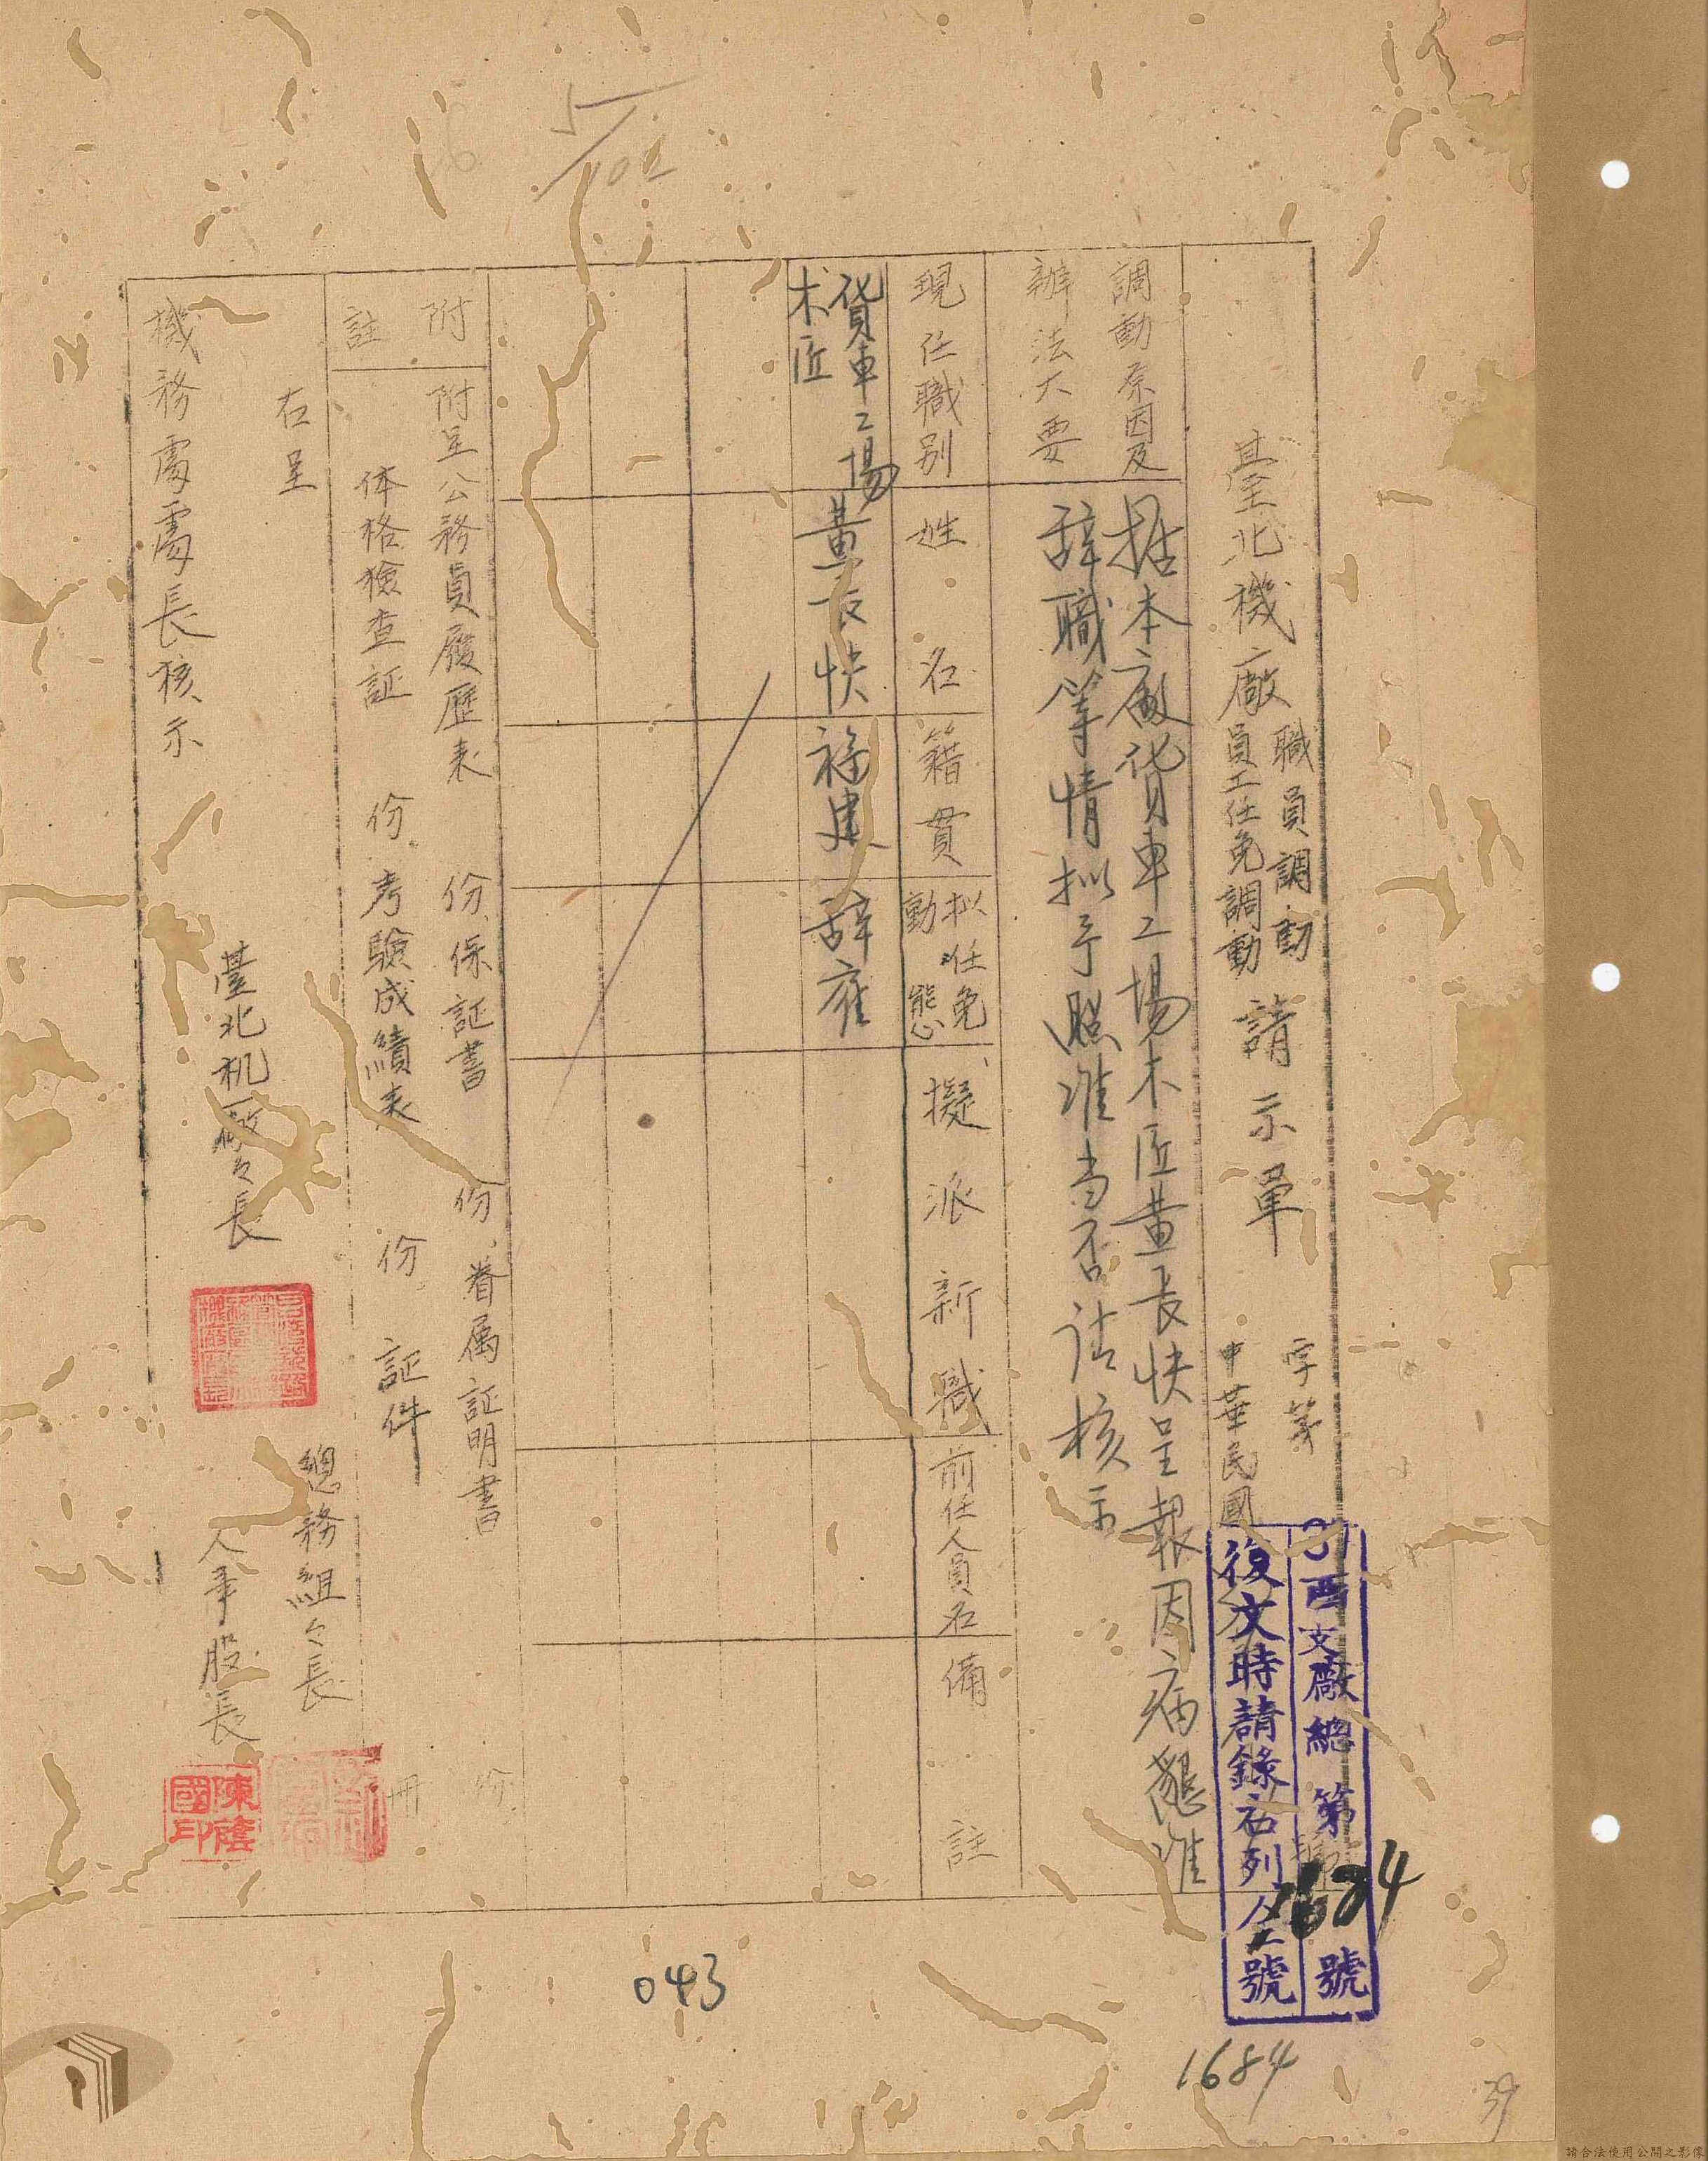 臺北機廠
職員調動
員工任免調動
請示單
字第
中華民國
37酉支廠總第1684號
復文時請錄右列全號
調動原因及
辦法大要
据本廠貨車工場木匠黃長快呈報因病懇准
辞職等情拟予照准当否请核示
現任職別
姓名
籍貫
拟任免
動態
擬派新職
前任人員名
備註
貨車工場
木匠
黃長快
福建
辞雇
附註
附呈公務員履歷表 份、保証書 份、眷属証明書 份
体格檢查証 份 考驗成績表 份 証件 冊
右呈
機務處處長核示
臺北机廠々長
總務組々長
人事股長
陳蔭國印
5/102
043
1684
39
請合法使用公開之影像